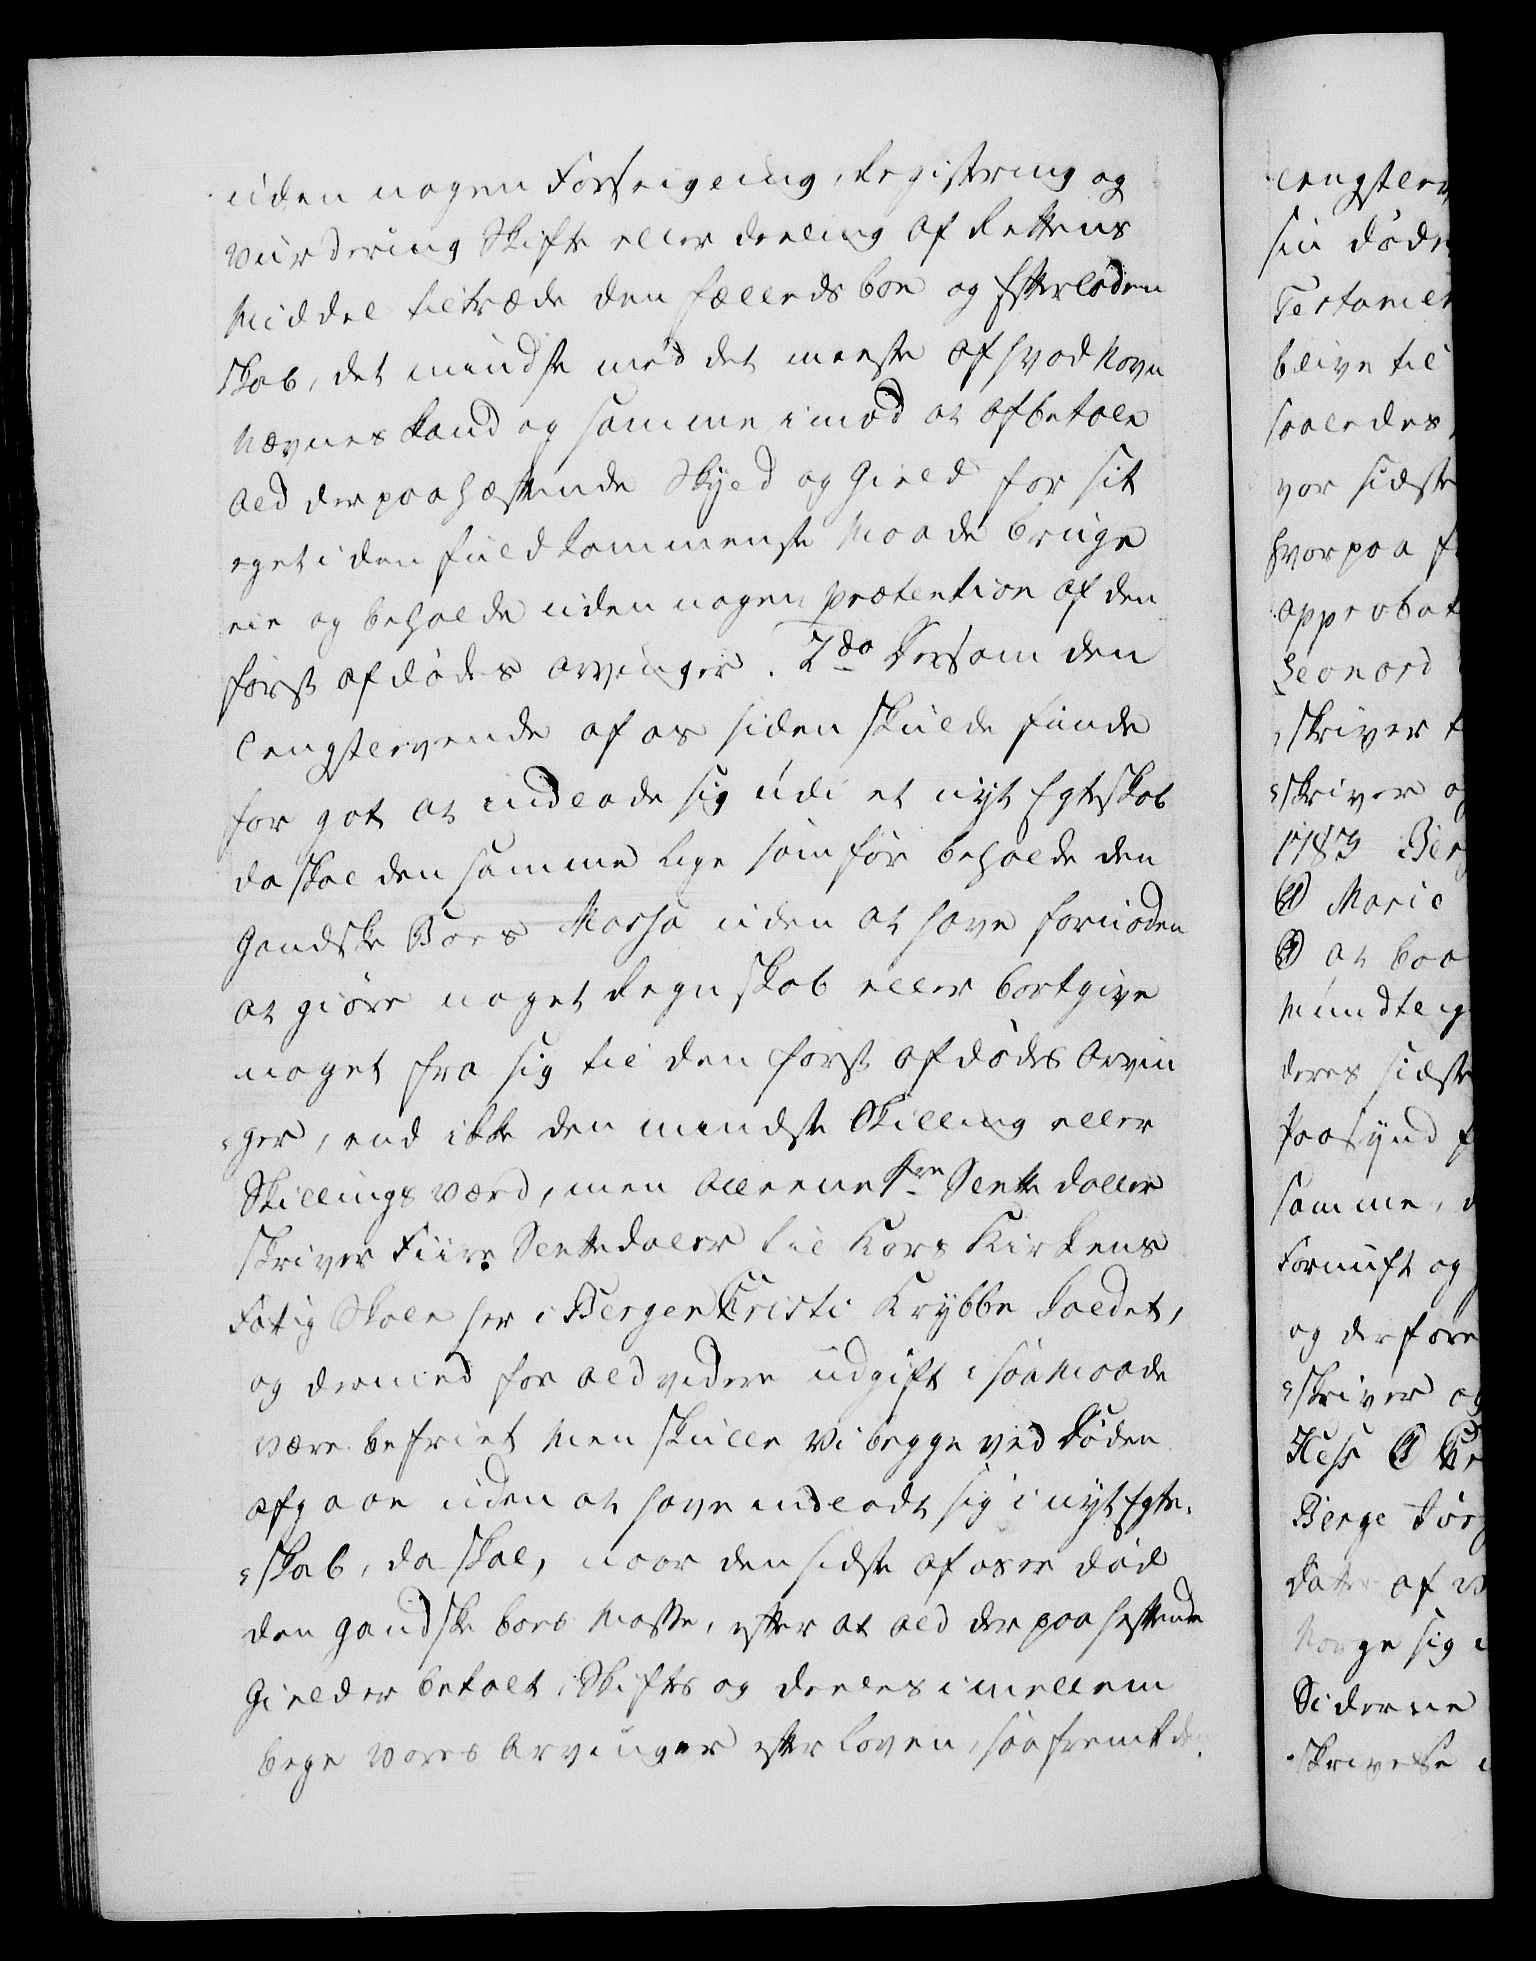 uden nogen Forseigeling, Registering og
vurdering Skifte eller deeling af Rettens
Middel tiltræde den fælleds boe og Efterladen
skab, det mindste med det meeste af hvad Navn
nævnes kand og samme imod at afbetale
ald derpaahæftende Skyld og Gield for sit
eget i den fuldkommenste Maade bruge
eie og beholde uden nogen prætention af den
først afdødes arvinger. 2do Dersom den
lengstlevende af os siden skulde finde
for got at indlade sig udi et nyt Egteskab
da skal den samme lige som før beholde den
gandske Boes Massa uden at have fornøden
at giøre noget Regnskab eller bortgive
noget fra sig til den først afdødes Arvin
"ger, end ikke den mindste Skilling eller
Skillings værd, men alleene 4re Slette daller
skriver Fiire Slettedaler til Kors Kirkens
Fatig Skole her i Bergen Christi Krybbe kaldet,
og dermed for ald videre udgift i saa Maade
være befriet Men skulle Vi begge ved Døden
afgaae uden at have indladt sig i nyt Egte-
"skab, da skal, naar den sidste af os er død
den gandske boes Masse, efter at ald der paa heftende
Gield er betalt, Skiftes og deeles imellem
bege vores Arvinger efter loven, saafremt de
lengstlev
sin døde
Testamen
blive til
saaledes
vor sidste
hvorpaa
approbat
Leonard
"skriver
"skriver og
1783 Ber
Marie
at baa
Mundtlig
deres sidste
Paasynd
samme,
Fornuft og
og derfore
"skriver og
Hess
Berge
Datter af
Norge sig
Siderne
skrivelse